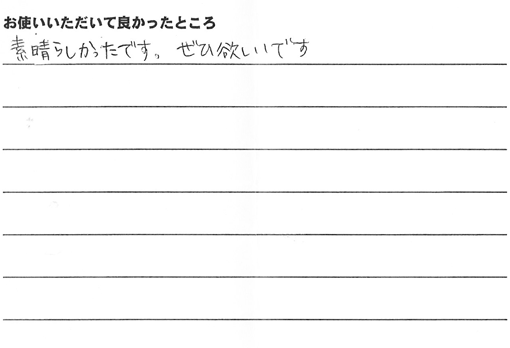 お使いいただいて良かったところ
素晴らしかったです。ぜひ欲しいです